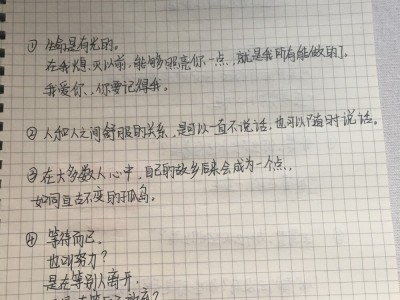 ① 生命是有光的。
在我熄灭以前，能够照亮你一点，就是我所有能做的了。
我爱你，你要记得我。
② 人和人之间舒服的关系，是可以一直不说话，也可以随时说话。
③ 在大多数人心中，自己的故乡后来会成为一个点，
如同亘古不变的孤岛。
④ 等待而已。
也叫努力？
是在等别人离开，